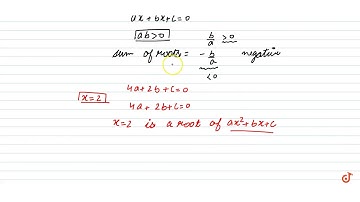 ax + bx + c = 0
ab > 0
b/a > 0
sum of roots = - b/a negative
< 0
4a + 2b + c = 0
x = 2
4a + 2b + c = 0
x = 2 is a root of ax² + bx + c